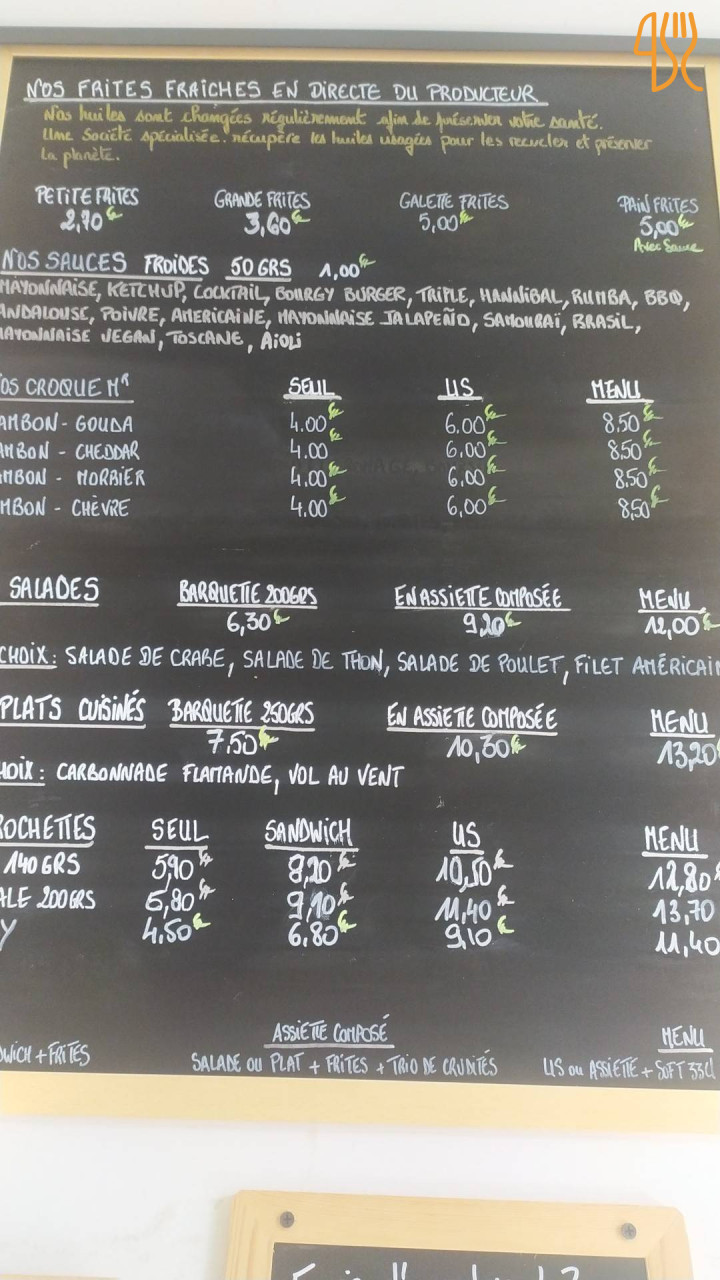 NOS FRITES FRAÎCHES EN DIRECTE DU PRODUCTEUR
Nos huiles sont changées régulièrement afin de préserver votre santé.
Une Société spécialisée récupère les huiles usagées pour les recycler et préserver
La planète.
PETITE FRITES GRANDE FRITES GALETTE FRITES PAIN FRITES
2,70€ 3,60€ 5,00€ 5,00€
Avec Sauce
NOS SAUCES FROIDES 50GRS 1,00€
MAYONNAISE, KETCHUP, COCKTAIL, BOURGY BURGER, TRIPLE, HANNIBAL, RUMBA, BBQ,
ANDALOUSE, POIVRE, AMERICAINE, MAYONNAISE JALAPEÑO, SAMOURAÏ, BRASIL,
MAYONNAISE VEGAN, TOSCANE, AÏOLI
OS CROQUE Mr SEUL US MENU
AMBON - GOUDA 4.00€ 6.00€ 8.50€
AMBON - CHEDDAR 4.00€ 6,00€ 8.50€
MBON - MORBIER 4,00€ 6,00€ 8.50€
MBON - CHÈVRE 4.00€ 6,00€ 8,50€
SALADES BARQUETTE 200GRS EN ASSIETTE COMPOSÉE MENU
6,30€ 9,20€ 12,00€
CHOIX : SALADE DE CRABE, SALADE DE THON, SALADE DE POULET, FILET AMÉRICAIN
PLATS CUISINÉS BARQUETTE 250GRS EN ASSIETTE COMPOSÉE MENU
7.50€ 10,30€ 13,20€
HOIX : CARBONNADE FLAMANDE, VOL AU VENT
ROCHETTES SEUL SANDWICH US MENU
140GRS 5,90€ 8,20€ 10,50€ 12,80€
ALE 200GRS 6,80€ 9,10€ 11,40€ 13,70
Y 4.50€ 6.80€ 9,10€ 11,40
ASSIETTE COMPOSÉ MENU
DWICH + FRITES SALADE OU PLAT + FRITES + TRIO DE CRUDITÉS US ou ASSIETTE + SOFT 33Cl